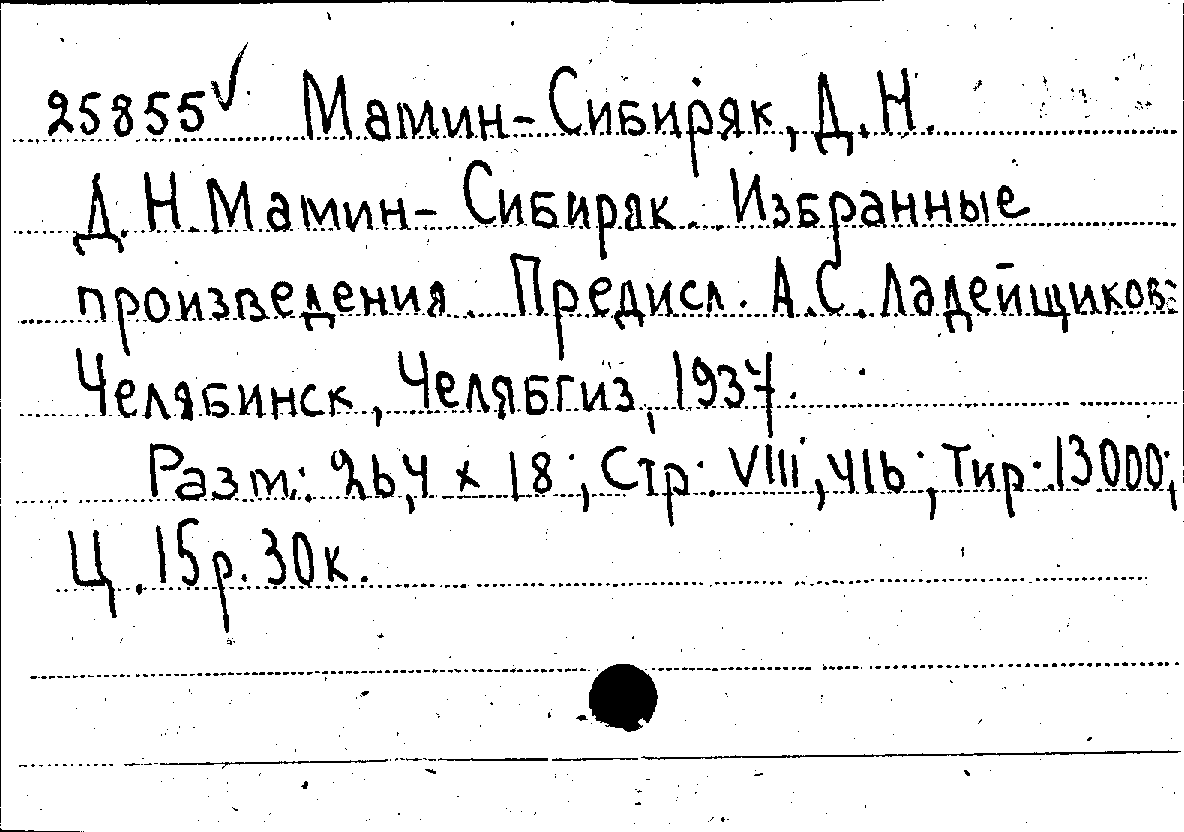 25855 ✓ Мамин-Сибиряк, Д.Н.
Д.Н. Мамин-Сибиряк. Избранные
произведения. Предисл. А.С. Ладейщиков.
Челябинск, Челябгиз, 1937.
Разм.: 26,4 x 18; Стр.: VIII, 416; Тир.: 13000;
Ц. 15р. 30к.